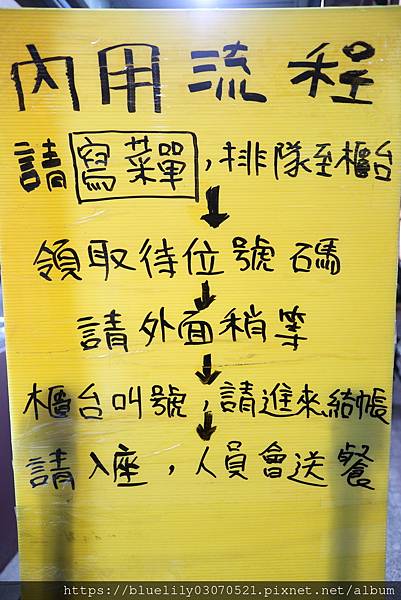 內用流程
請寫菜單，排隊至櫃台
領取待位號碼
請外面稍等
櫃台叫號，請進來結帳
請入座，人員會送餐
https://bluelily03070521.pixnet.net/album